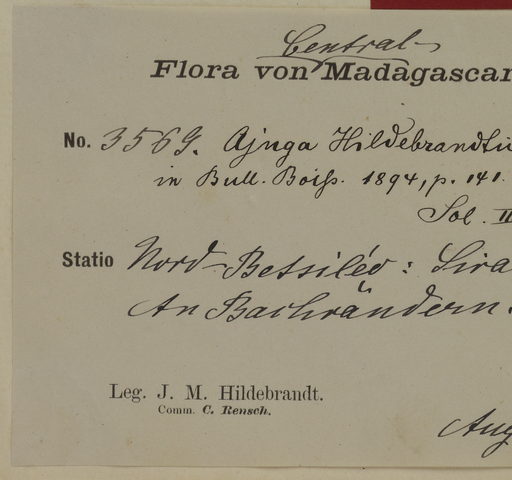 Central-
Flora von Madagascar
No. 3569. Ajuga Hildebrandtii
in Bull. Boiss. 1894, p. 141.
Sol. II
Statio Nord-Betsiléo: Sira
An Bachrändern.
Leg. J. M. Hildebrandt.
Comm. C. Rensch.
Aug